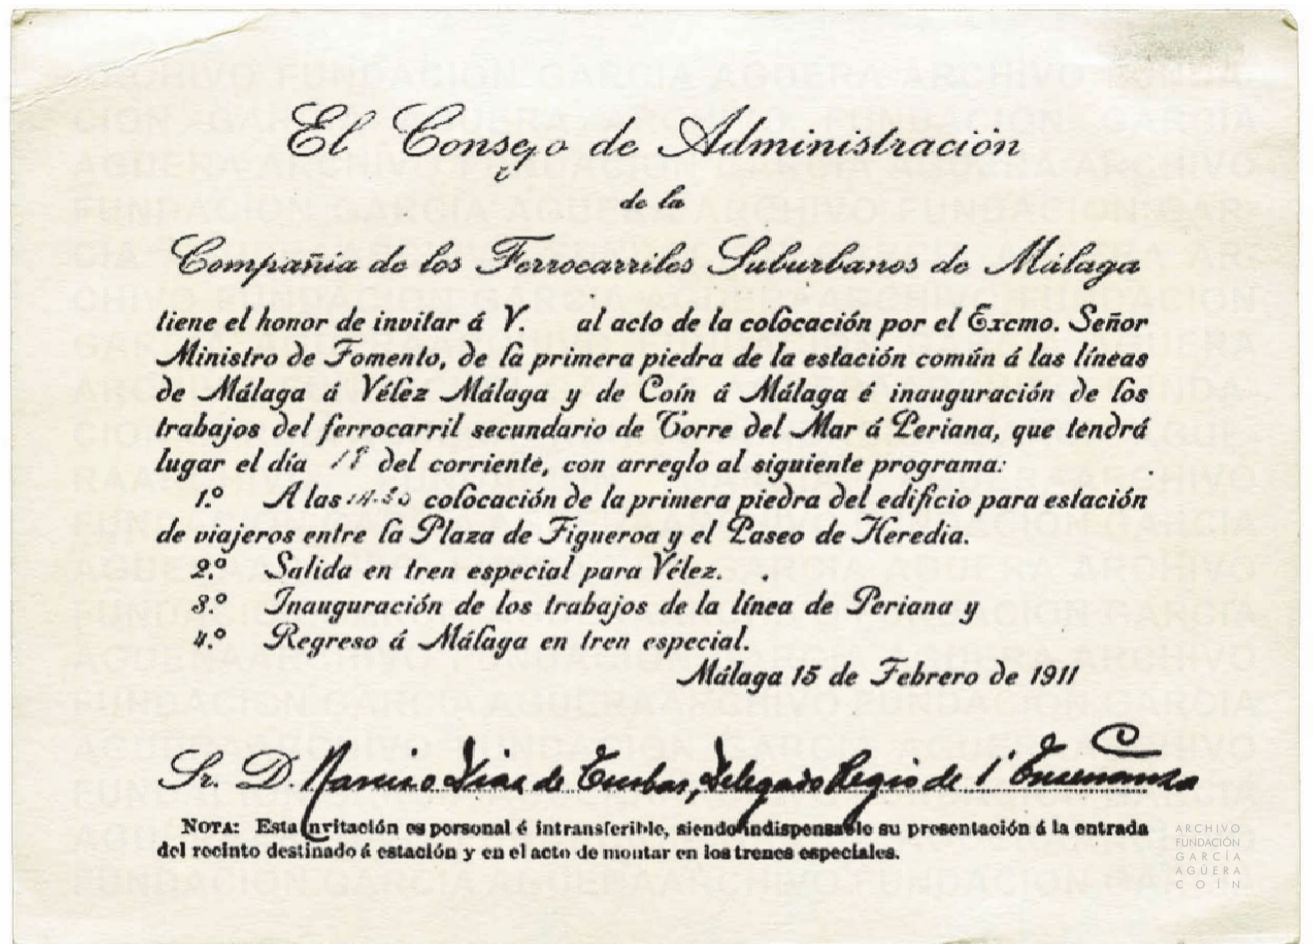 El Consejo de Administración
de la
Compañia de los Ferrocarriles Suburbanos de Málaga
tiene el honor de invitar á V. al acto de la colocación por el Excmo. Señor
Ministro de Fomento, de la primera piedra de la estación común á las líneas
de Málaga á Vélez Málaga y de Coín á Málaga é inauguración de los
trabajos del ferrocarril secundario de Torre del Mar á Periana, que tendrá
lugar el día del corriente, con arreglo al siguiente programa:
1.º A las colocación de la primera piedra del edificio para estación
de viajeros entre la Plaza de Figueroa y el Paseo de Heredia.
2.º Salida en tren especial para Vélez.
3.º Inauguración de los trabajos de la línea de Periana y
4.º Regreso á Málaga en tren especial.
Málaga 15 de Febrero de 1911
Sr. D. Narciso Diaz de Escobar, Delegado Regio de 1ª Enseñanza
NOTA: Esta invitación es personal é intransferible, siendo indispensable su presentación á la entrada
del recinto destinado á estación y en el acto de montar en los trenes especiales.
ARCHIVO
FUNDACIÓN
GARCÍA
AGÜERA
COÍN